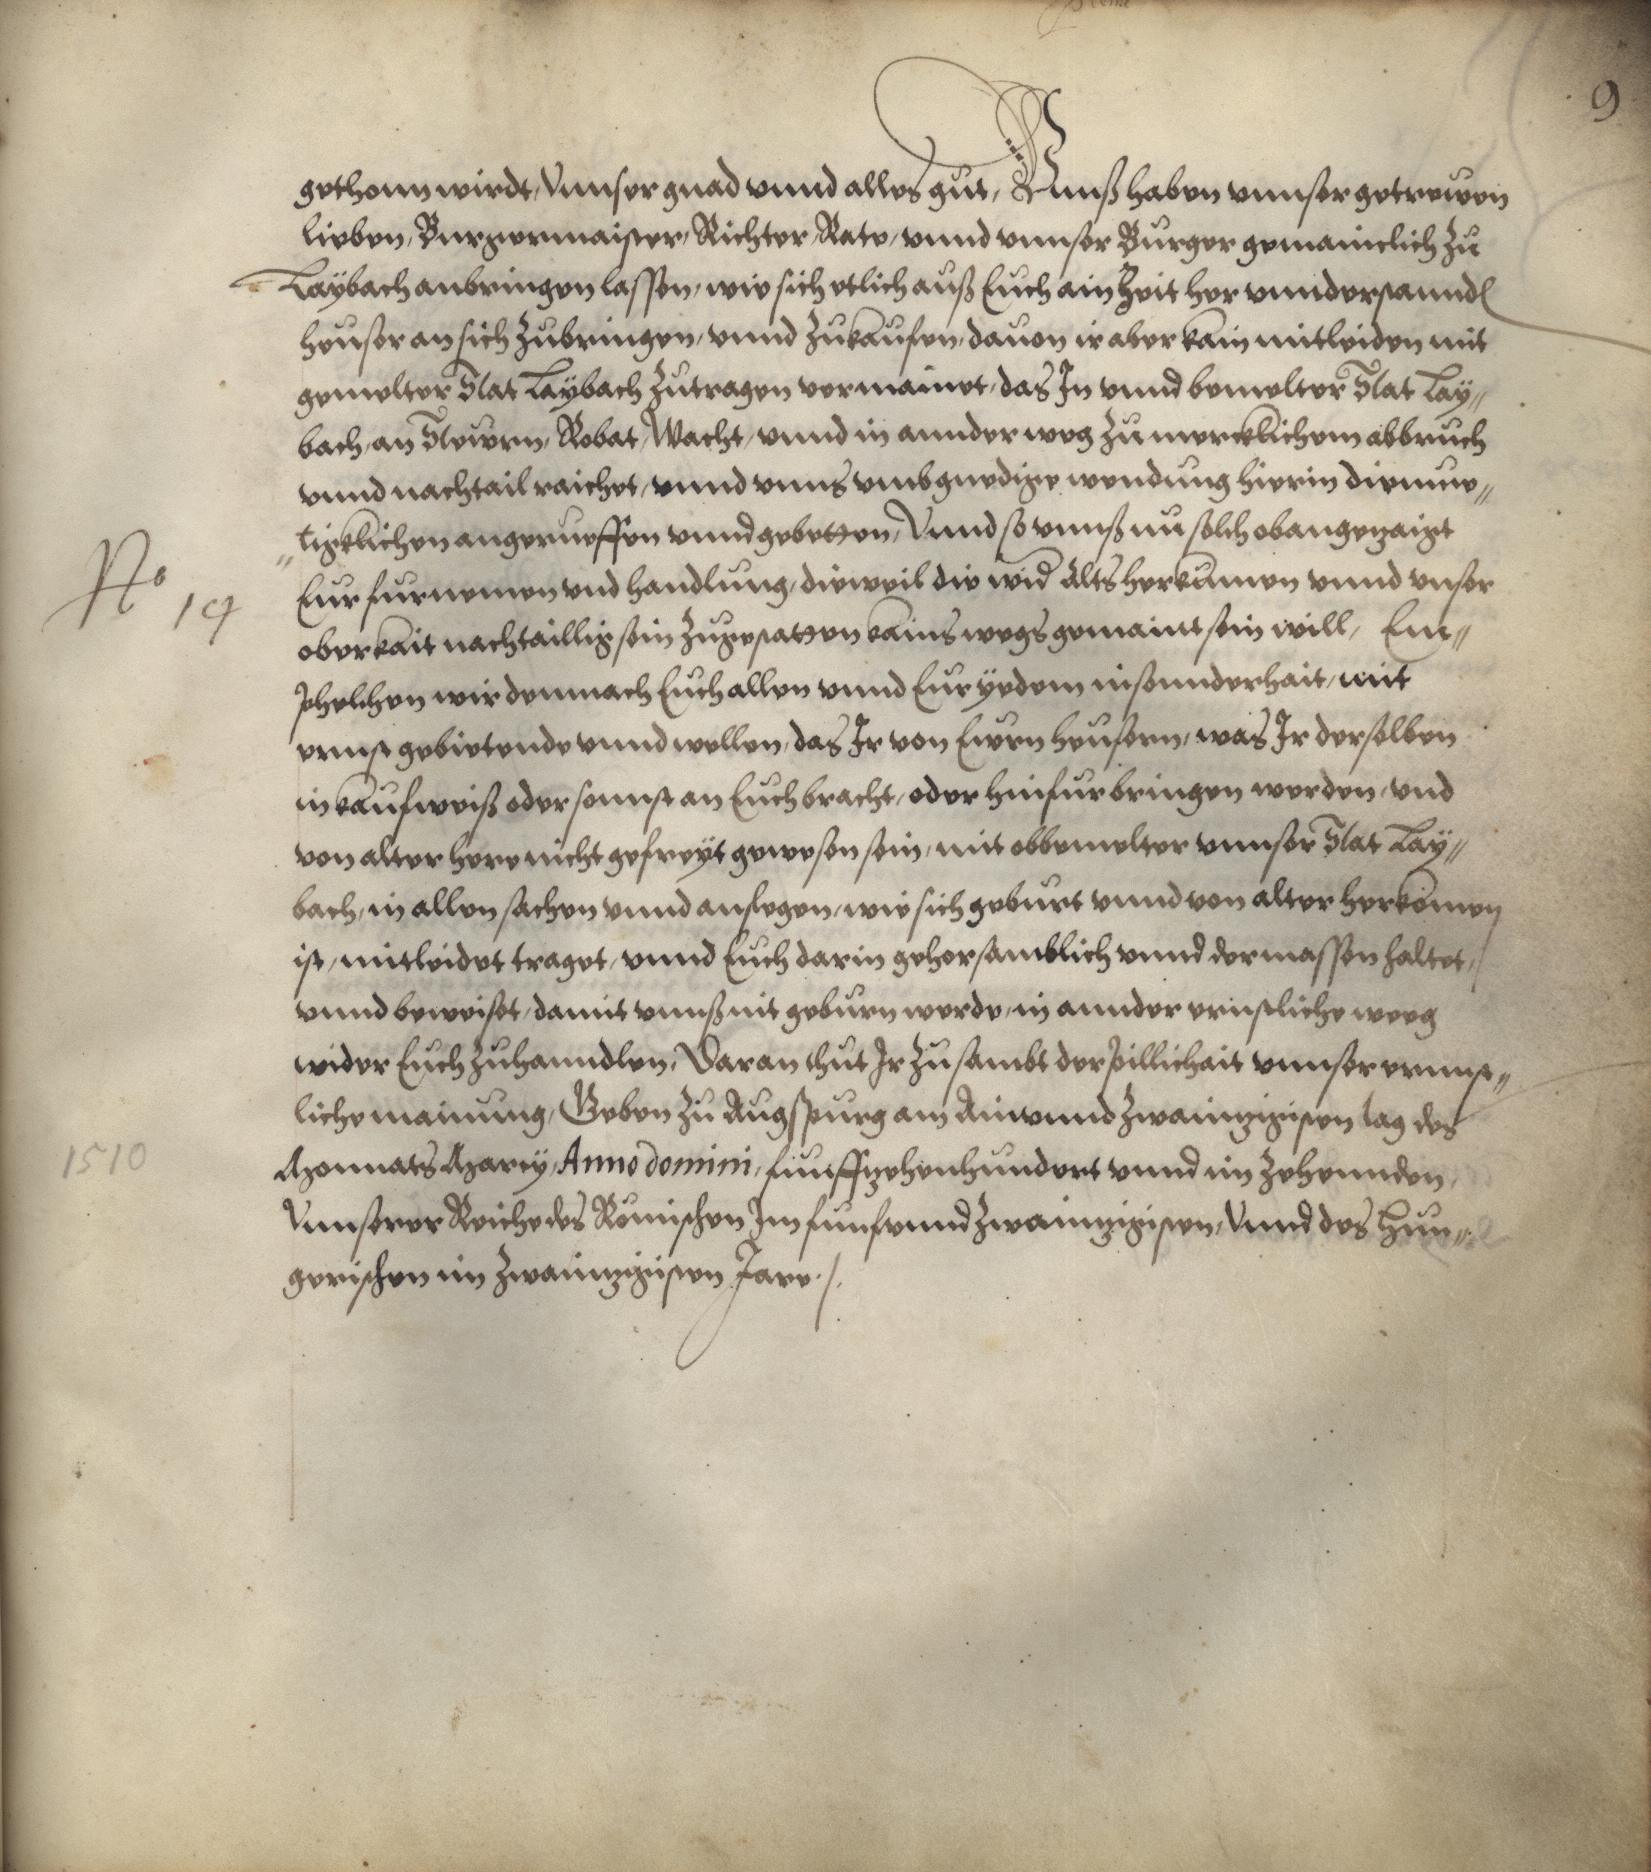 9
gethonn wirdt, Vnnser gnad vnnd alles gut, Vnnß haben vnnser getrewen
lieben, Burgermaister, Richter, Rate, vnnd vnnser Burger gemainclich zu
Laybach anbringen lassen, wie sich etlich auß Euch ain Zeit her vnnderstannd
heuser an sich zubringen, vnnd zukaufen, dauon ir aber kain mitleiden mit
gemelter Stat Laybach zutragen vermainet, das In vnnd bemelter Stat Lay„
bach, an Stewrn, Robat, Wacht, vnnd in annder weg zu mercklichem abbruch
vnnd nachtail raichet, vnnd vnns vmb gnedige wendung hierin diemue„
„tigklichen angerueffen vnnd gebetten, Vnnd so vnnß nu solch obangezaigt
Eur furnemen vnd handlung, dieweil die wid Alts herkumen vnnd vnser
No 19
oberkait nachtaillig sein zugestatten kains wegs gemaint sein will, Em„
phelhen wir demnach Euch allen vnnd Eur yedem insonnderhait, mit
ernnst gebietende vnnd wellen, das Ir von Ewrn heusern, was Ir derselben
in kaufweiß oder sonnst an Euch bracht, oder hinfur bringen werden, vnd
von alter here nicht gefreyt gewesen sein, mit obbemelter vnnser Stat Lay„
bach, in allen sachen vnnd anslegen, wie sich geburt vnnd von alter herkomen
ist, mitleidet traget, vnnd Euch darin gehorsamblich vnnd dermassen haltet,
vnnd beweiset, damit vnnß nit geburn werde, in annder ernstliche weeg
wider Euch zuhanndlen, Daran thut Ir zusambt der pillichait vnnser ernnst„
liche mainung, Geben zu Augspurg am Ainvnnd zwaintzigisten tag des
1510
Monnats Marcy, Anno domini, Funffzehenhundert vnnd im Zehennden,
Vnnserer Reiche des Römischen Im funfvnnd zwaintzigisten, Vnnd des Hun„
gerischen im zwaintzigisten Jare ./.